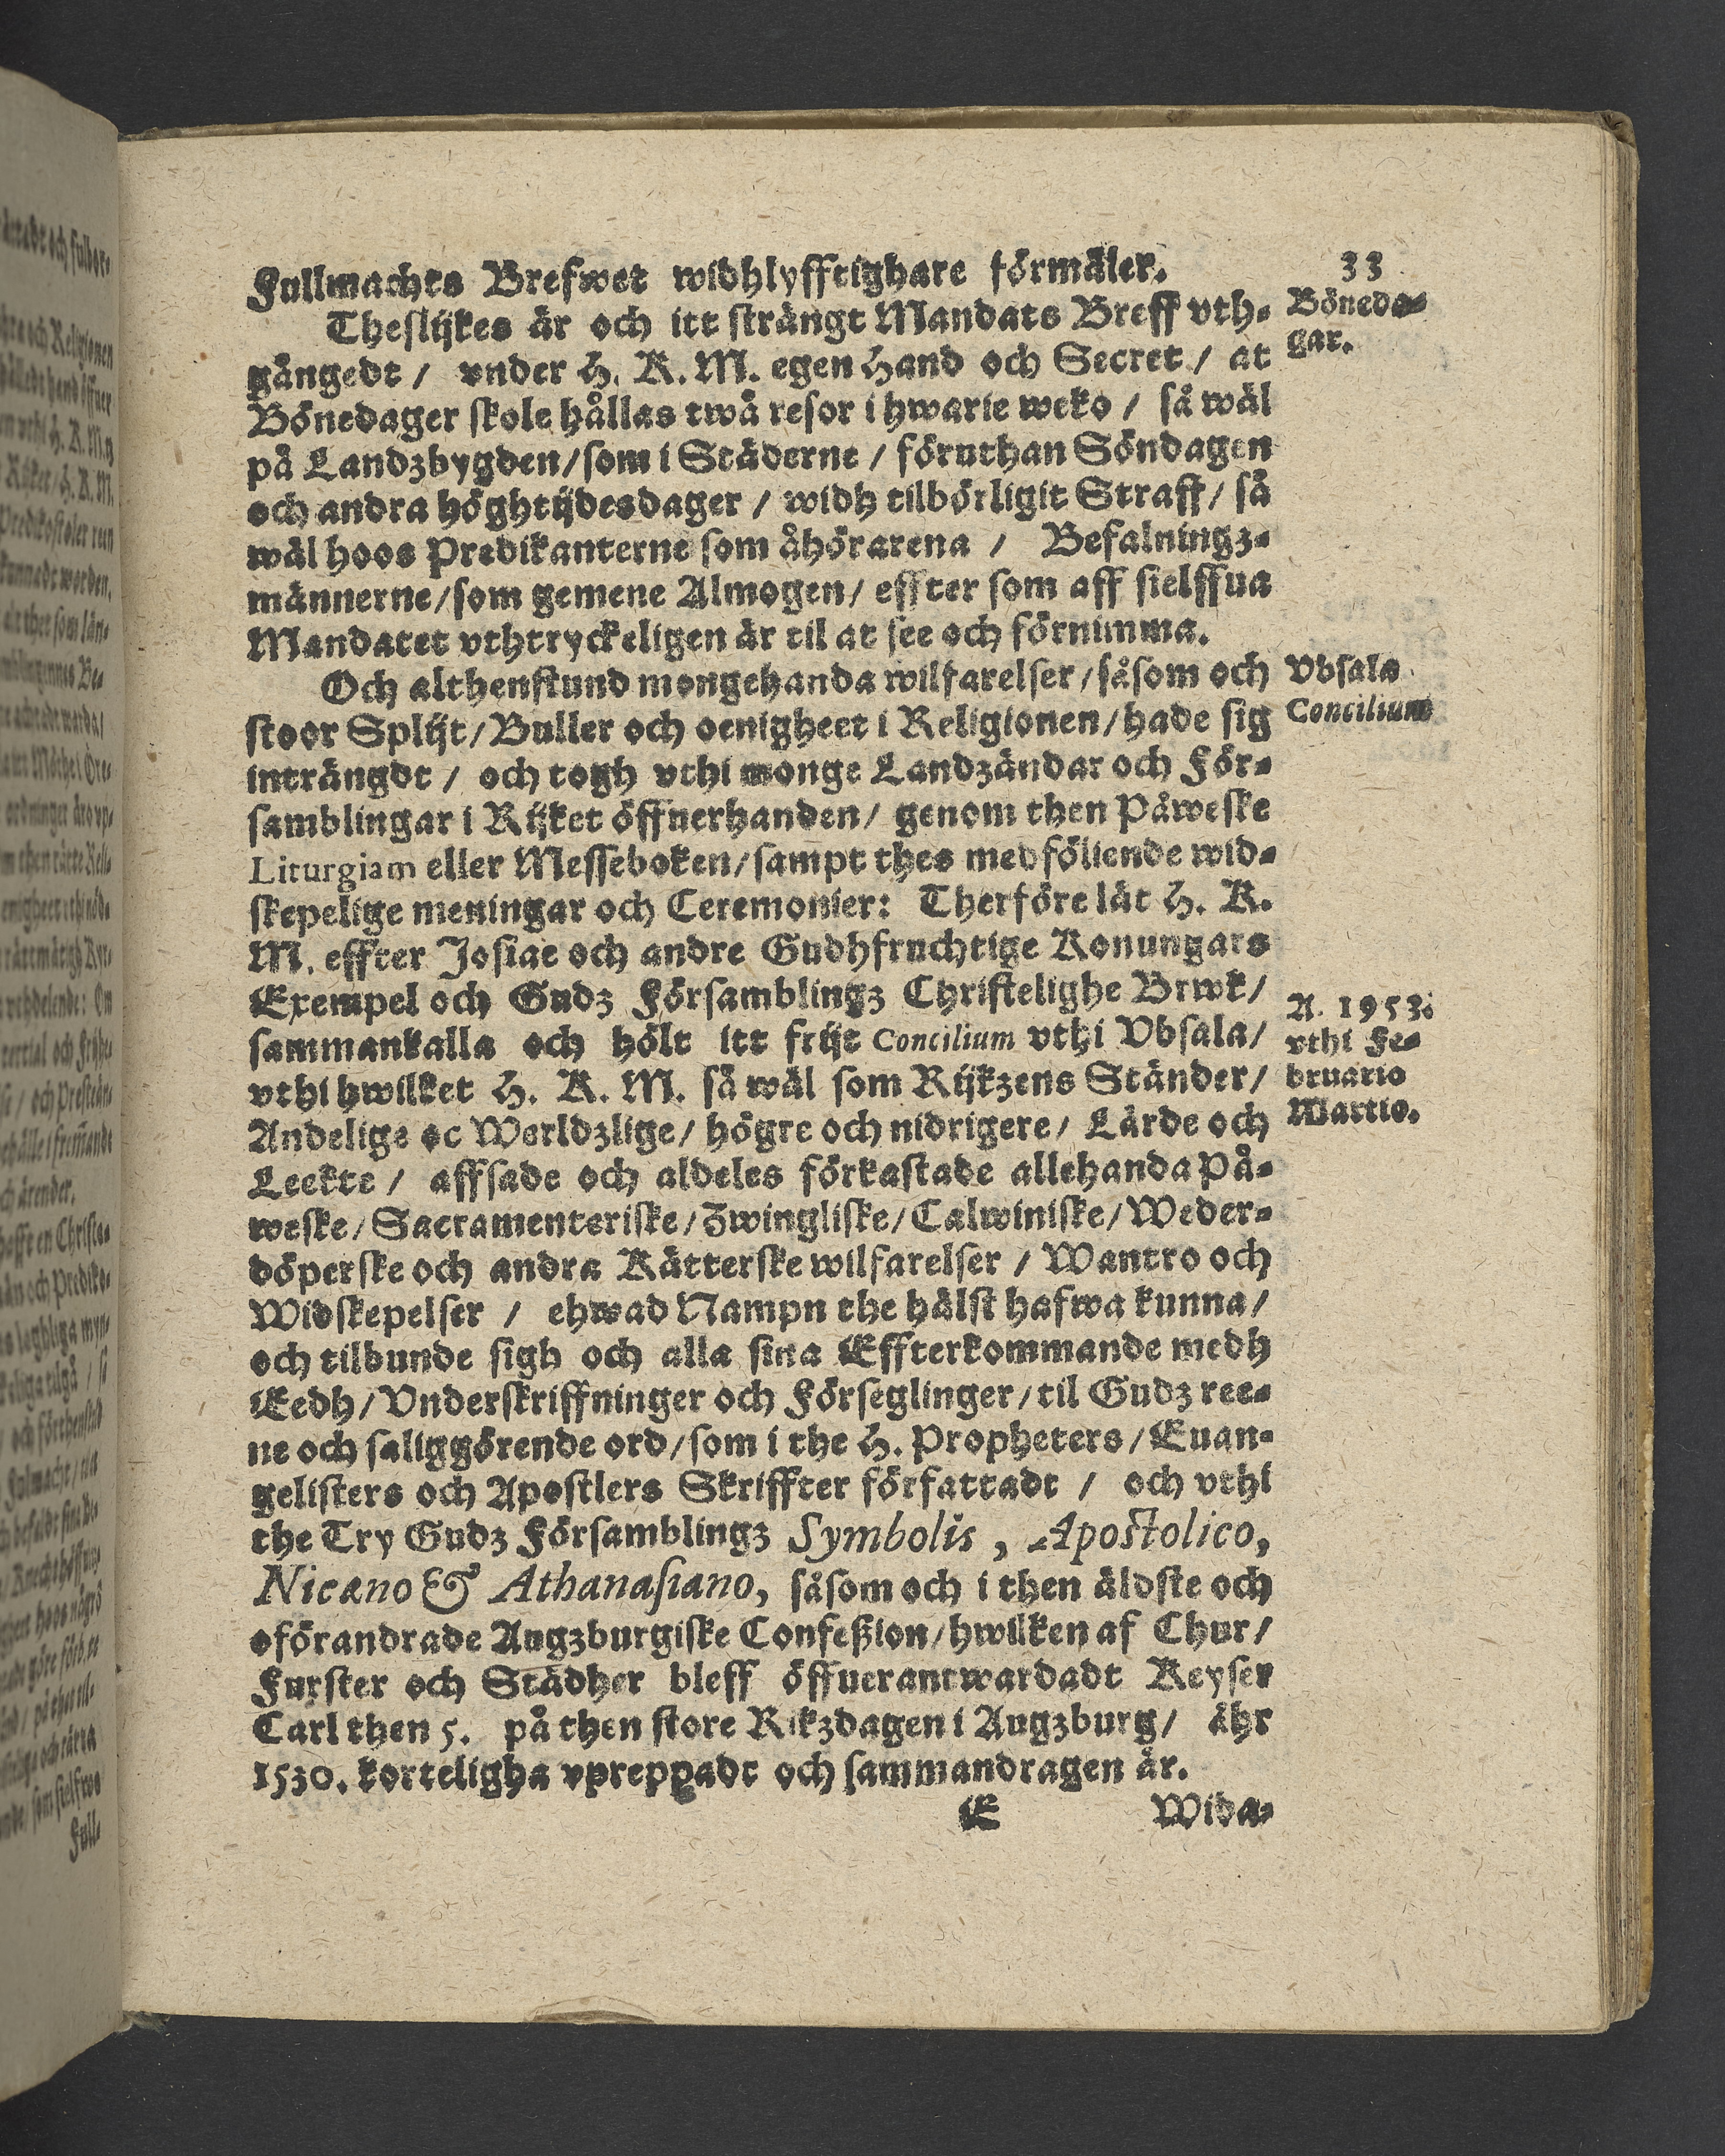 33
Fullmachts Brefwet widhlyfftighare förmäler.
Theslijkes är och itt strängt Mandats Breff vth-
gångedt / vnder H. K. M. egen Hand och Secret / at
Bönedager skole hållas twå resor i hwarie weko / så wäl
på Landzbygden / som i Städerne / föruthan Söndagen
och andra höghtijdesdager / widh tilbörligit Straff / så
wäl hoos Predikanterne som åhörarena / Befalningz-
männerne / som gemene Almogen / effter som aff sielffua
Mandatet vthtryckeligen är til at see och förnimma.
Böneda-
gar.
Och althenstund mongehanda wilfarelser / såsom och
stoor Splijt / Buller och oenigheet i Religionen / hade sig
inträngdt / och togh vthi monge Landzändar och För-
samblingar i Rijket öffuerhanden / genom then Påweske
Liturgiam eller Messeboken / sampt thes medföliende wid-
skepelige meningar och Ceremonier: Therföre lät H. K.
M. effter Josiae och andre Gudhfruchtige Konungars
Exempel och Gudz Församblingz Christelighe Brwk /
sammankalla och hölt itt frijt Concilium vthi Vbsala /
vthi hwilket H. K. M. så wäl som Rijkzens Ständer /
Andelige oc Werldzlige / högre och nidrigere / Lärde och
Leekte / affsade och aldeles förkastade allehanda På-
weske / Sacramenteriske / Zwingliske / Calwiniske / Weder-
döperske och andra Kätterske wilfarelser / Wantro och
Widskepelser / ehwad Nampn the hälst hafwa kunna /
och tilbunde sigh och alla sina Effterkommande medh
Eedh / Vnderskriffninger och Förseglinger / til Gudz ree-
ne och saliggörende ord / som i the H. Propheters / Euan-
gelisters och Apostlers Skriffter författadt / och vthi
the Try Gudz Församblingz Symbolis, Apostolico,
Nicæno & Athanasiano, såsom och i then äldste och
oförandrade Augzburgiske Confeßion / hwilken af Chur /
Furster och Städher bleff öffuerantwardadt Keyser
Carl then 5. på then store Rikzdagen i Augzburg / åhr
1530. korteligha vpreppadt och sammandragen är.
Vbsala
Concilium
A. 1953.
vthi Fe-
bruario
Martio.
E Wida-